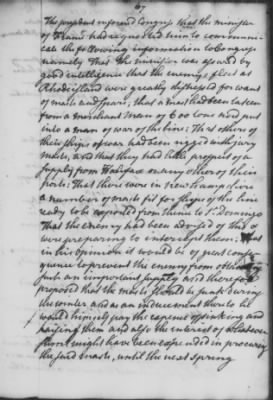 67
The president informed Congress that the minister
of France had requested him to communi-
cate the following information to Congress
namely That the minister was assured by
good intelligence that the enemy's fleet at
Rhode island were greatly distressed for want
of masts and spars; that a mast had been taken
from a merchant man of 600 tons and put
into a man of war of the line; That others of
their ships of war had been rigged with jury
masts, and that they had little prospect of a
supply from Halifax or any other of their
ports: That there were in New hampshire
a number of masts fit for ships of the line
ready to be exported from thence to St Domingo
That the enemy had been advised of this &
were preparing to intercept them: That
in his opinion it would be of great conse-
quence to prevent the enemy from obtaining
such an important supply and therefore
proposed that the masts should be sunk during
the winter and as an inducement thereto he
would himself pay the expence of sinking and
raising them and also the interest of whatever
might have been expended in procuring
the said masts, until the next spring